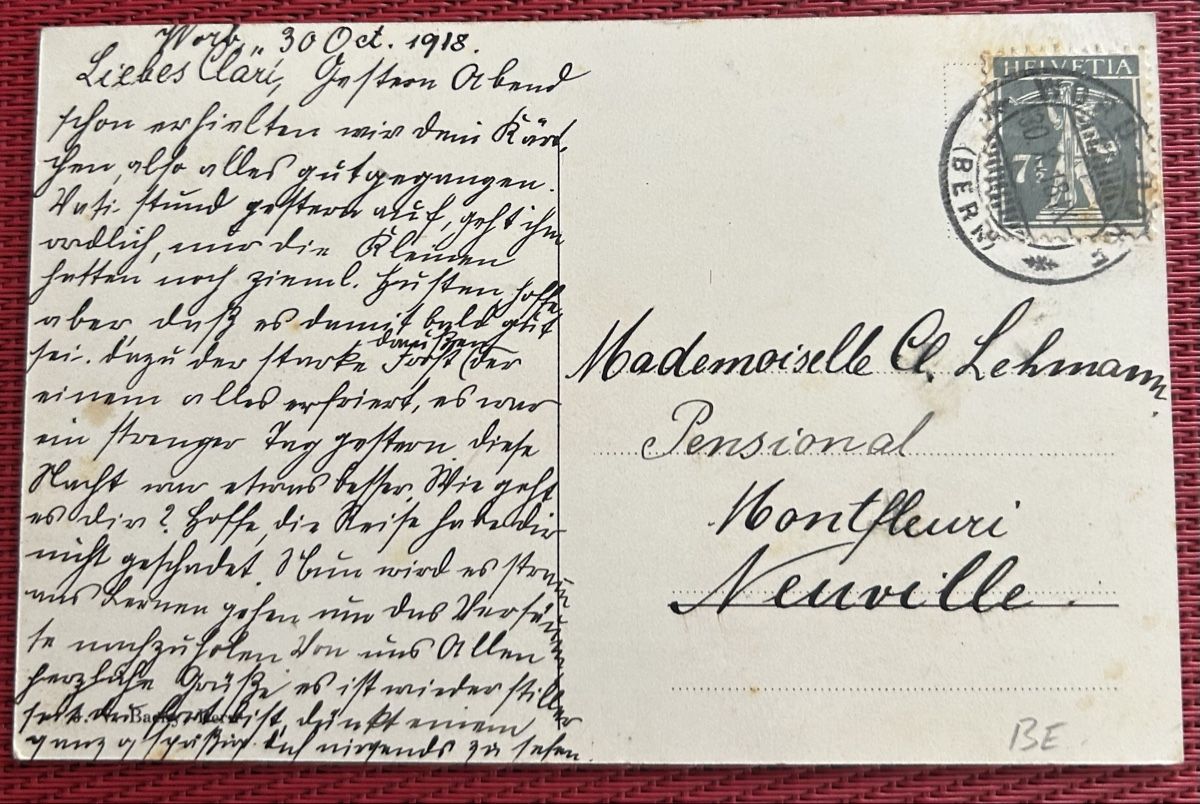 Worb, 30 Oct. 1918.
Liebes Clari, Gestern Abend
schon erhielten wir dein Kärt-
chen, also alles gut gegangen.
Vati stund gestern auf, geht ihm
ordlich, nur die Kleinen
hatten noch zieml. Husten, hoffe
aber daß es damit bald gut
sei. Dazu der starke Frost (der
draußen
einem alles erfriert, es war
ein strenger Tag gestern, diese
Nacht war etwas besser. Wie geht
es dir? Hoffe, die Reise habe dir
nicht geschadet. Nun wird es stramm
ans Lernen gehen um das Versäum
te nachzuholen Von uns Allen
herzliche Grüße, es ist wieder stiller
seit du fort bist, dünkt einem
ganz gspässig dich nirgends zu sehen.
HELVETIA
7½
30
18
(BERN)
Mademoiselle Cl. Lehmann.
Pensionat
Montfleuri
Neuville.
BE.